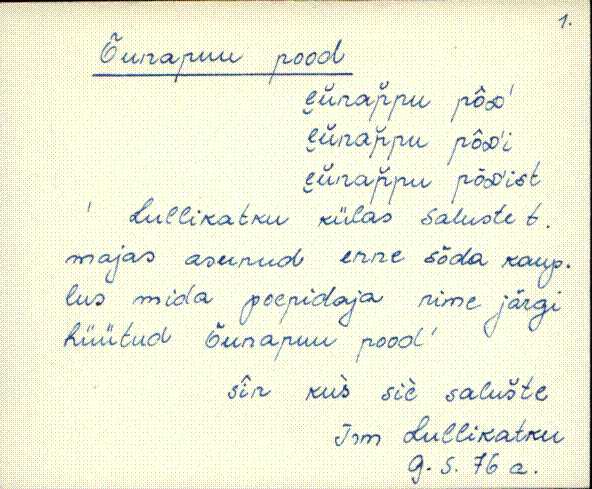 1.
Õunapuu pood
e̮ŭnap̆pu pôD'
e̮ŭnap̆pu pôD'i
e̮ŭnap̆pu pōD'ist
' Lullikatku külas Saluste t.
majas asunud enne sõda kaup.
lus mida poepidaja nime järgi
hüütud Õunapuu pood'
sîn kùs siè salušte
Irm Lullikatku
9. S. 76 a.